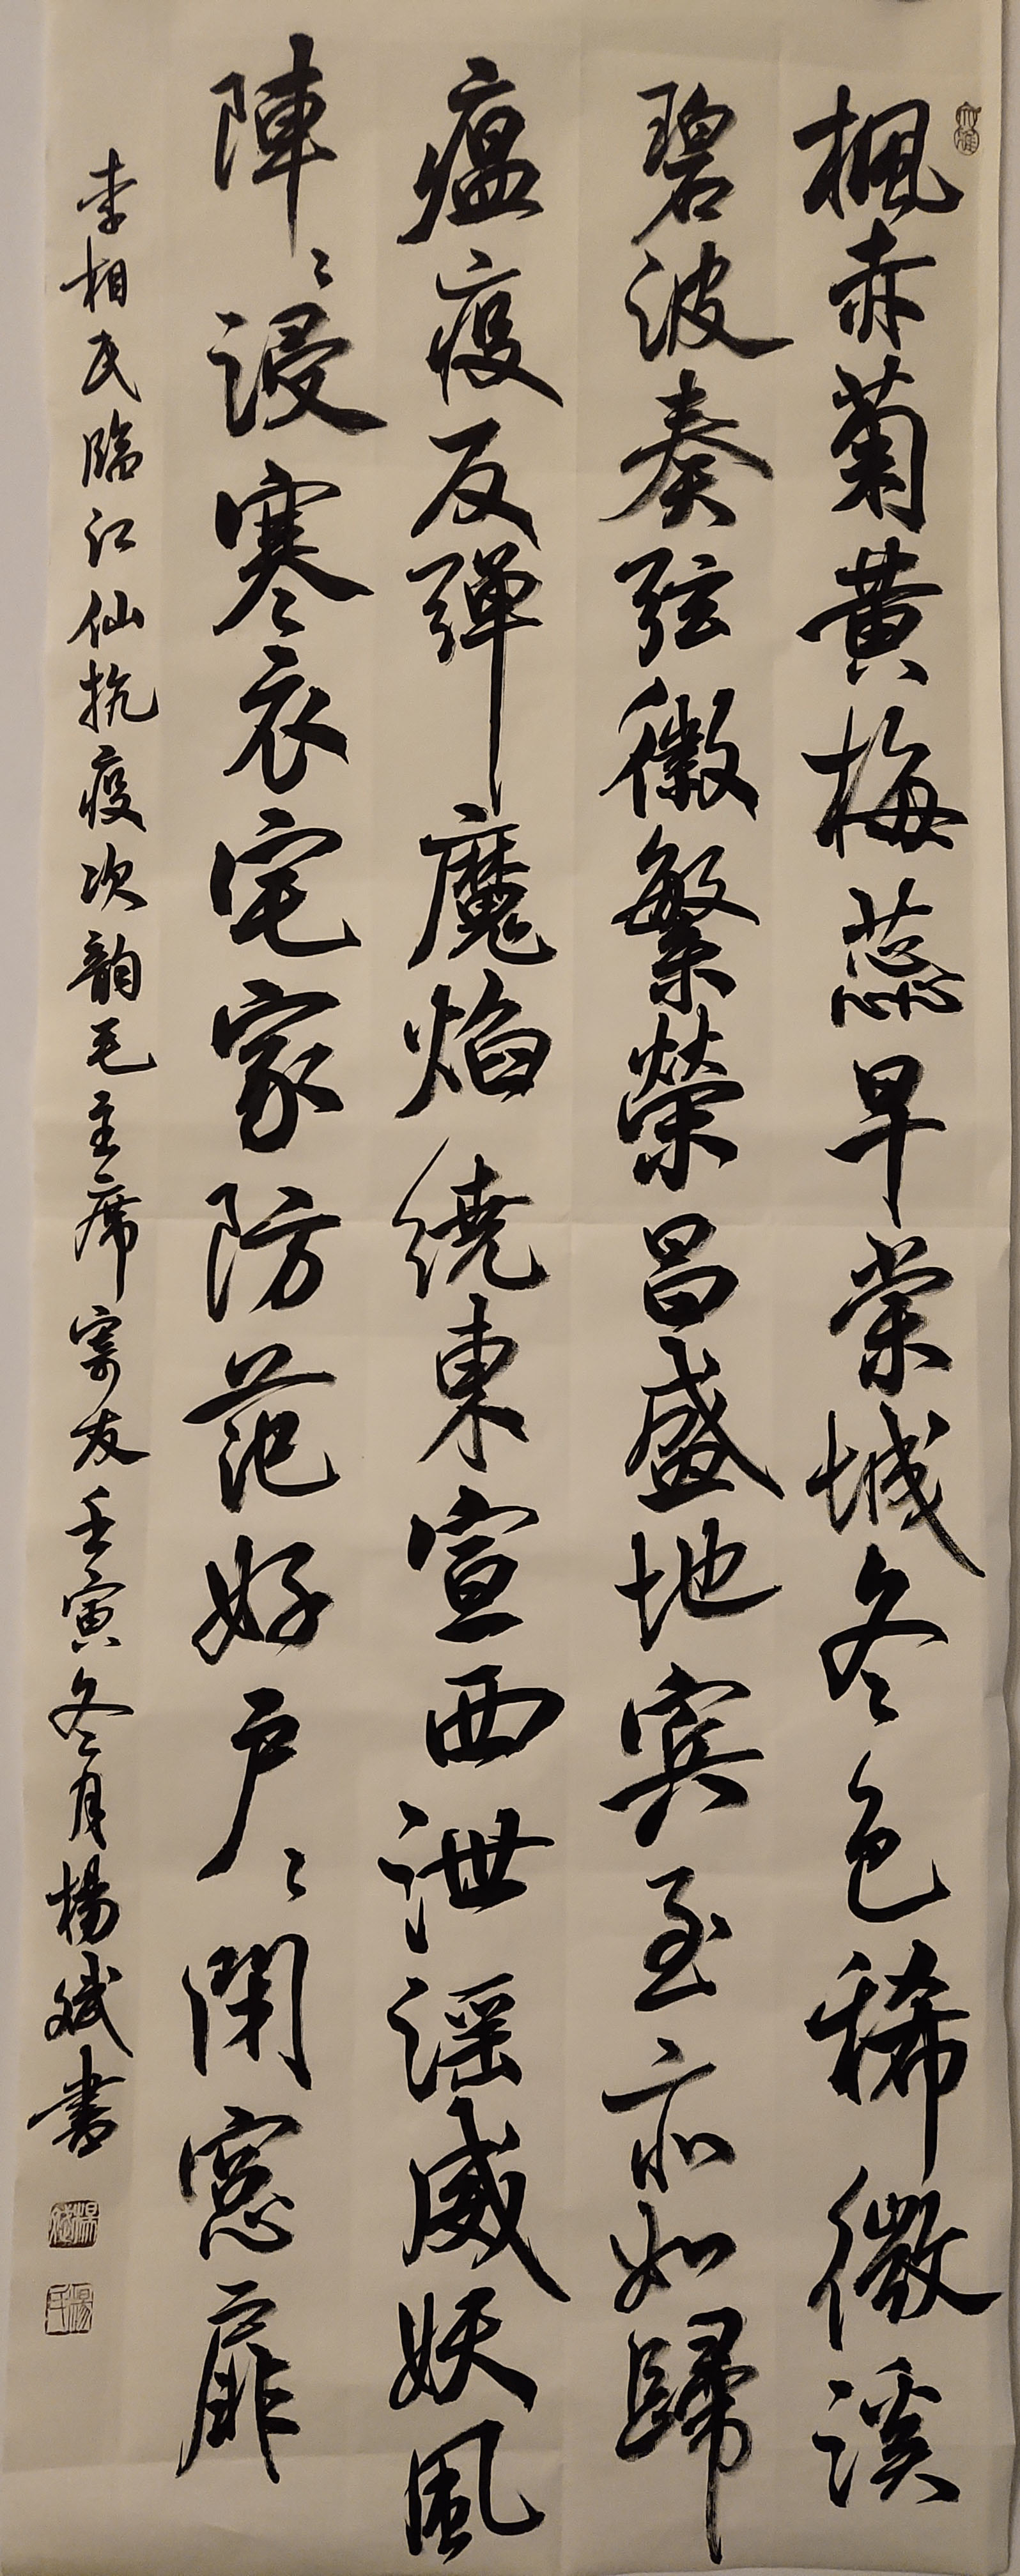 楓赤菊黄梅蕊早棠城冬色稀微溪
碧波奏弦徽繁榮昌盛地宾至亦如歸
瘟疫反彈魔焰繞東宣西泄謡威妖風
陣々浸寒衣宅家防范好户々闭窓扉
李相民臨江仙抗疫次韵毛主席寄友壬寅冬月楊斌書
楊斌
楊氏